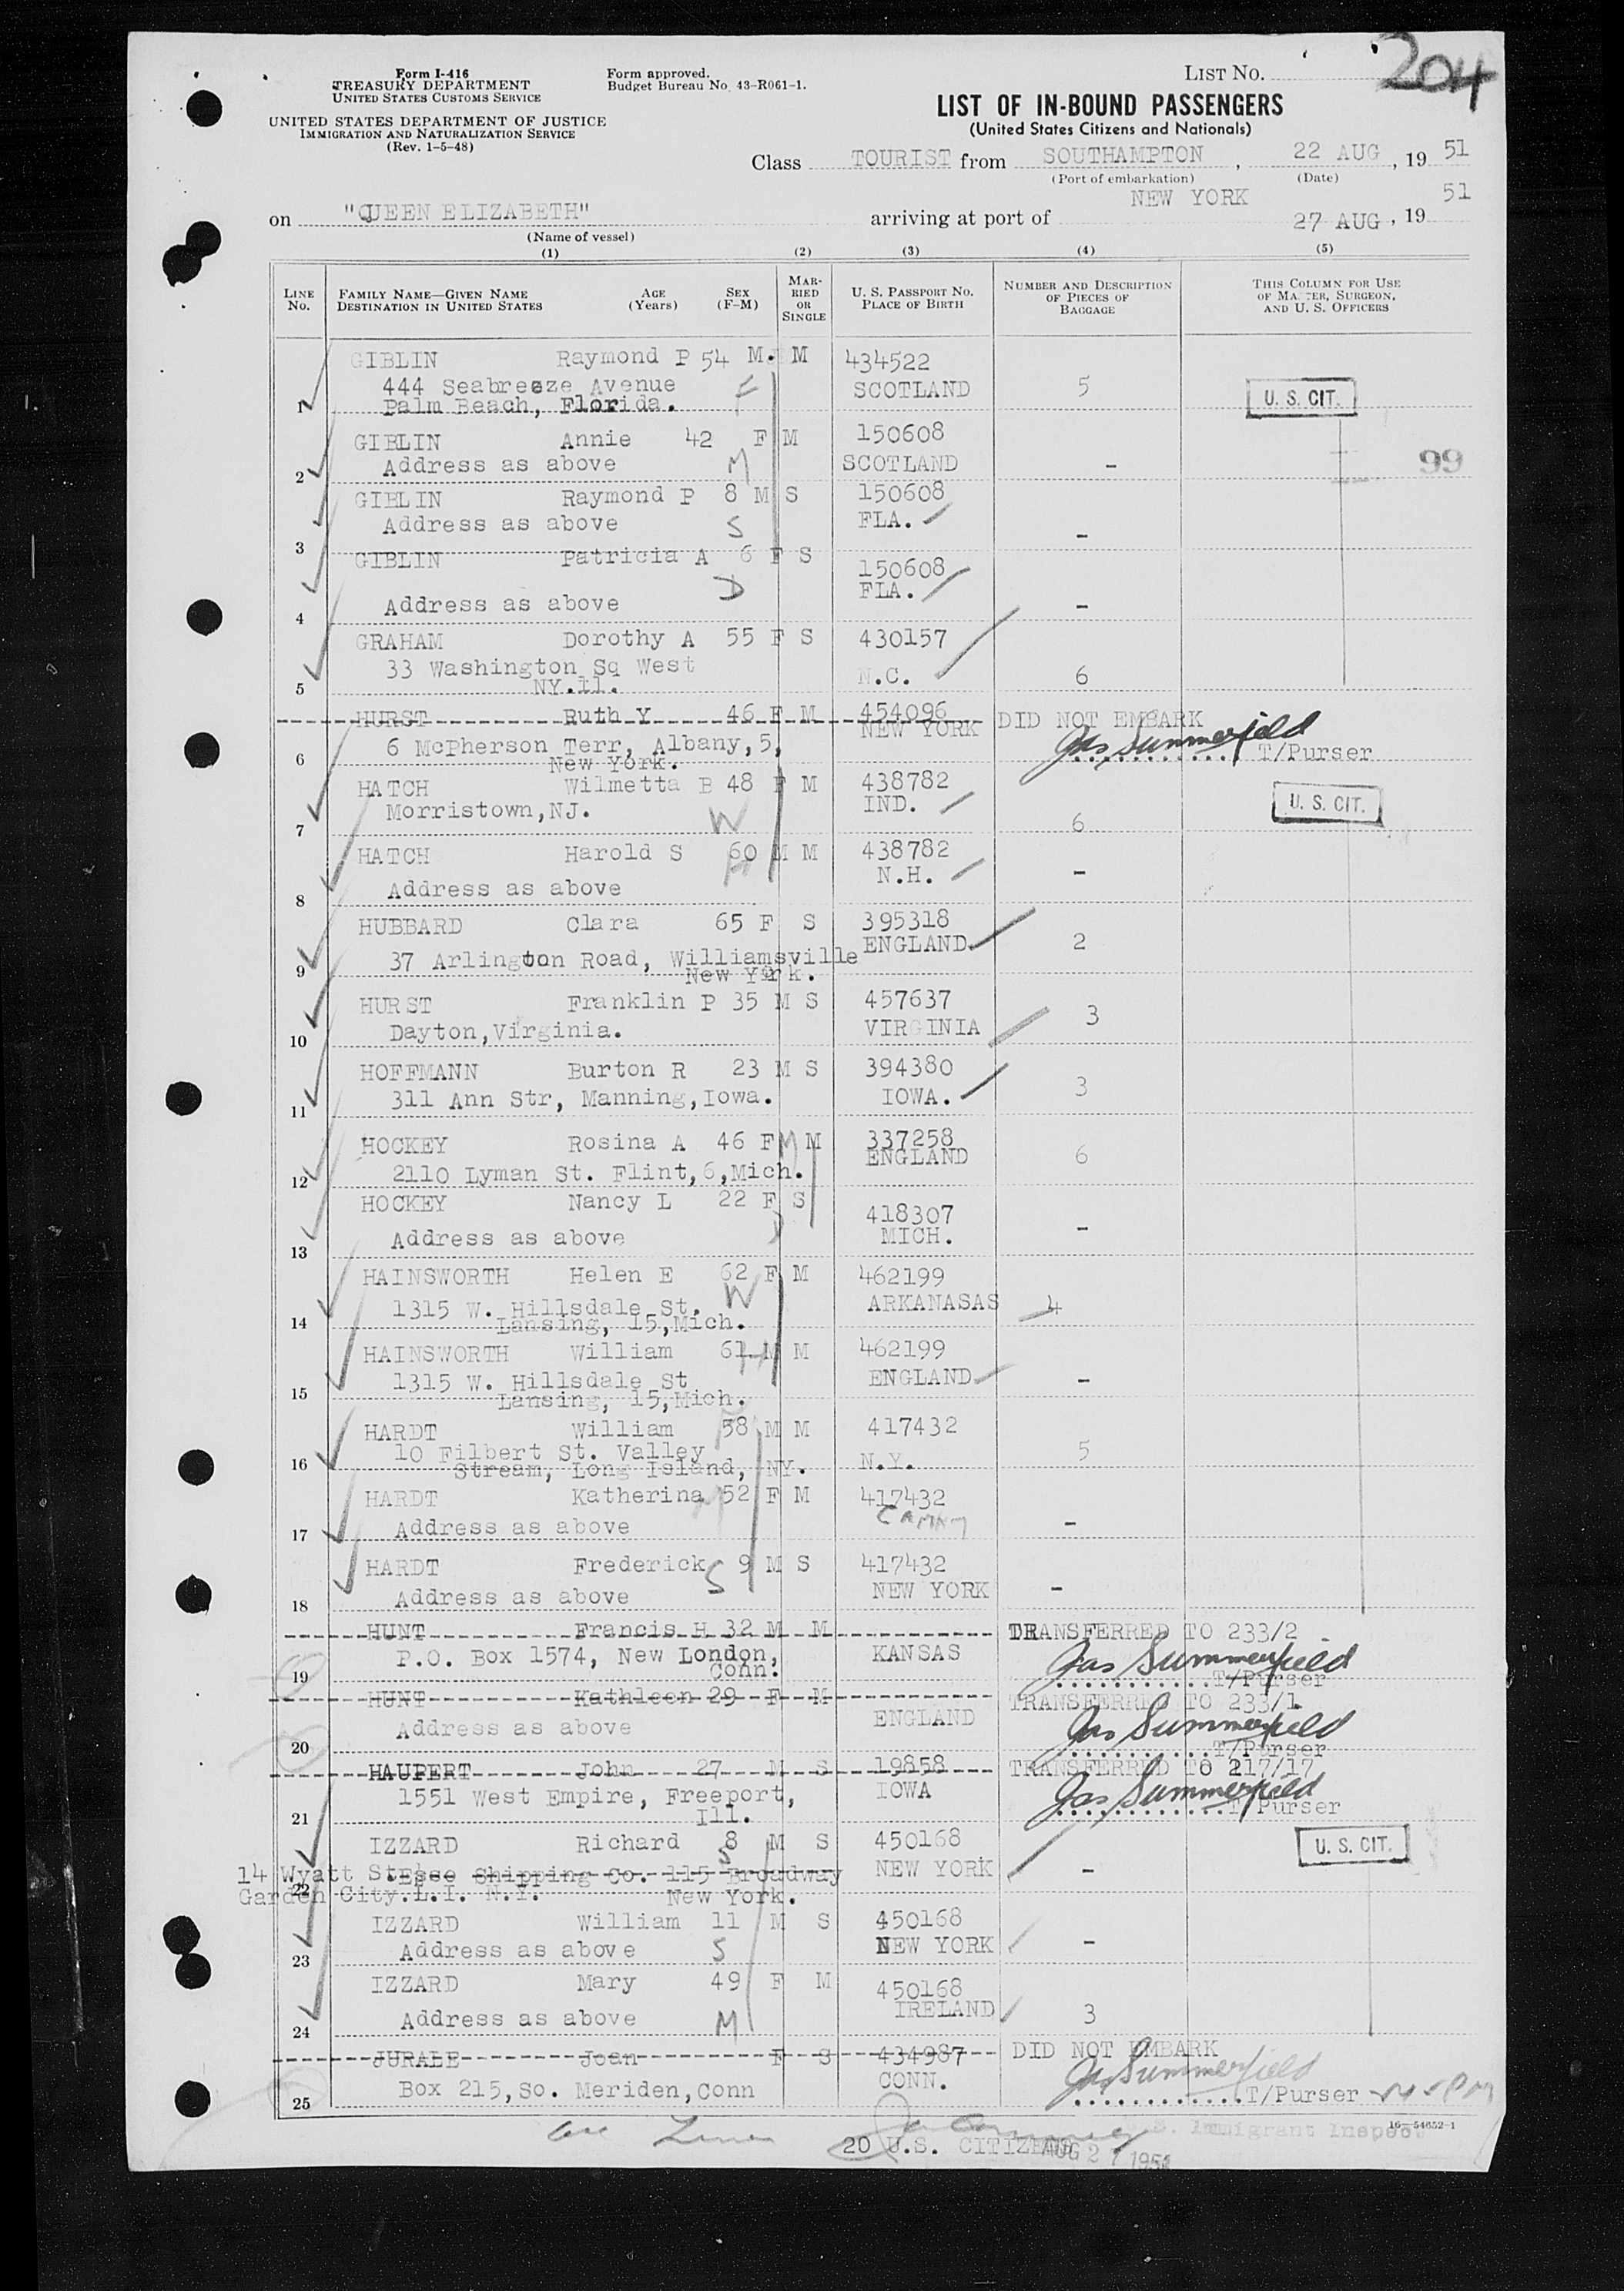 204
Form I-416
TREASURY DEPARTMENT
UNITED STATES CUSTOMS SERVICE
UNITED STATES DEPARTMENT OF JUSTICE
IMMIGRATION AND NATURALIZATION SERVICE
(Rev. 1-5-48)
Form approved.
Budget Bureau No. 43-R061-1.
LIST NO.
LIST OF IN-BOUND PASSENGERS
(United States Citizens and Nationals)
Class TOURIST from SOUTHAMPTON, 22 AUG, 19 51
(Port of embarkation) (Date)
on "QUEEN ELIZABETH" arriving at port of NEW YORK 27 AUG, 19 51
(Name of vessel)
(1) (2) (3) (4) (5)
LINE No. FAMILY NAME—GIVEN NAME DESTINATION IN UNITED STATES AGE (Years) SEX (F-M) MARRIED OR SINGLE U. S. PASSPORT NO. PLACE OF BIRTH NUMBER AND DESCRIPTION OF PIECES OF BAGGAGE THIS COLUMN FOR USE OF MASTER, SURGEON, AND U. S. OFFICERS
GIBLIN Raymond P 54 M. M 434522
444 Seabreeze Avenue F SCOTLAND 5 U. S. CIT.
1 Palm Beach, Florida.
GIBLIN Annie 42 F M 150608
2 Address as above M SCOTLAND - 99
GIBLIN Raymond P 8 M S 150608
3 Address as above S FLA. -
GIBLIN Patricia A 6 F S 150608
D FLA.
4 Address as above -
GRAHAM Dorothy A 55 F S 430157
33 Washington Sq West N.C. 6
5 NY.11.
HURST Ruth Y 46 F M 454096 DID NOT EMBARK
NEW YORK
6 McPherson Terr, Albany,5, Jas Summerfield T/Purser
6 New York.
HATCH Wilmetta B 48 F M 438782
Morristown,NJ. W IND. U. S. CIT.
7 6
HATCH Harold S 60 M M 438782
H N.H. -
8 Address as above
HUBBARD Clara 65 F S 395318
ENGLAND 2
9 37 Arlington Road, Williamsville
New York.
HURST Franklin P 35 M S 457637
10 Dayton,Virginia. VIRGINIA 3
HOFFMANN Burton R 23 M S 394380
11 311 Ann Str, Manning,Iowa. IOWA. 3
HOCKEY Rosina A 46 F M M 337258
ENGLAND 6
12 2110 Lyman St. Flint,6,Mich.
HOCKEY Nancy L 22 F S 418307
13 Address as above D MICH. -
HAINSWORTH Helen E 62 F M 462199
1315 W. Hillsdale St. W ARKANASAS 4
14 Lansing, 15,Mich.
HAINSWORTH William 61 M M 462199
1315 W. Hillsdale St H ENGLAND -
15 Lansing, 15,Mich.
HARDT William 58 M M 417432
10 Filbert St. Valley 5
16 Stream, Long Island, NY. N.Y.
HARDT Katherina 52 F M 417432
17 Address as above -
HARDT Frederick 9 M S 417432
18 Address as above S NEW YORK -
HUNT Francis H 32 M M TRANSFERRED TO 233/2
P.O. Box 1574, New London, KANSAS Jas Summerfield
19 Conn. T/Purser
HUNT Kathleen 29 F M TRANSFERRED TO 233/1
Address as above ENGLAND Jas Summerfield
20 T/Purser
HAUPERT John 27 M S 19858 TRANSFERRED TO 217/17
1551 West Empire, Freeport, IOWA Jas Summerfield
21 Ill. T/Purser
IZZARD Richard 8 M S 450168 U. S. CIT.
14 Wyatt St. Esso Shipping Co. 115 Broadway S NEW YORK -
22 Garden City.L.I. N.Y. New York.
IZZARD William 11 M S 450168
23 Address as above S NEW YORK -
IZZARD Mary 49 F M 450168
24 Address as above M IRELAND 3
JURALE Joan F S 434987 DID NOT EMBARK
Box 215,So. Meriden,Conn CONN. Jas Summerfield
25 T/Purser
16—54652-1
Immigrant Inspect
20 U.S. CITIZENS
AUG 27 1951